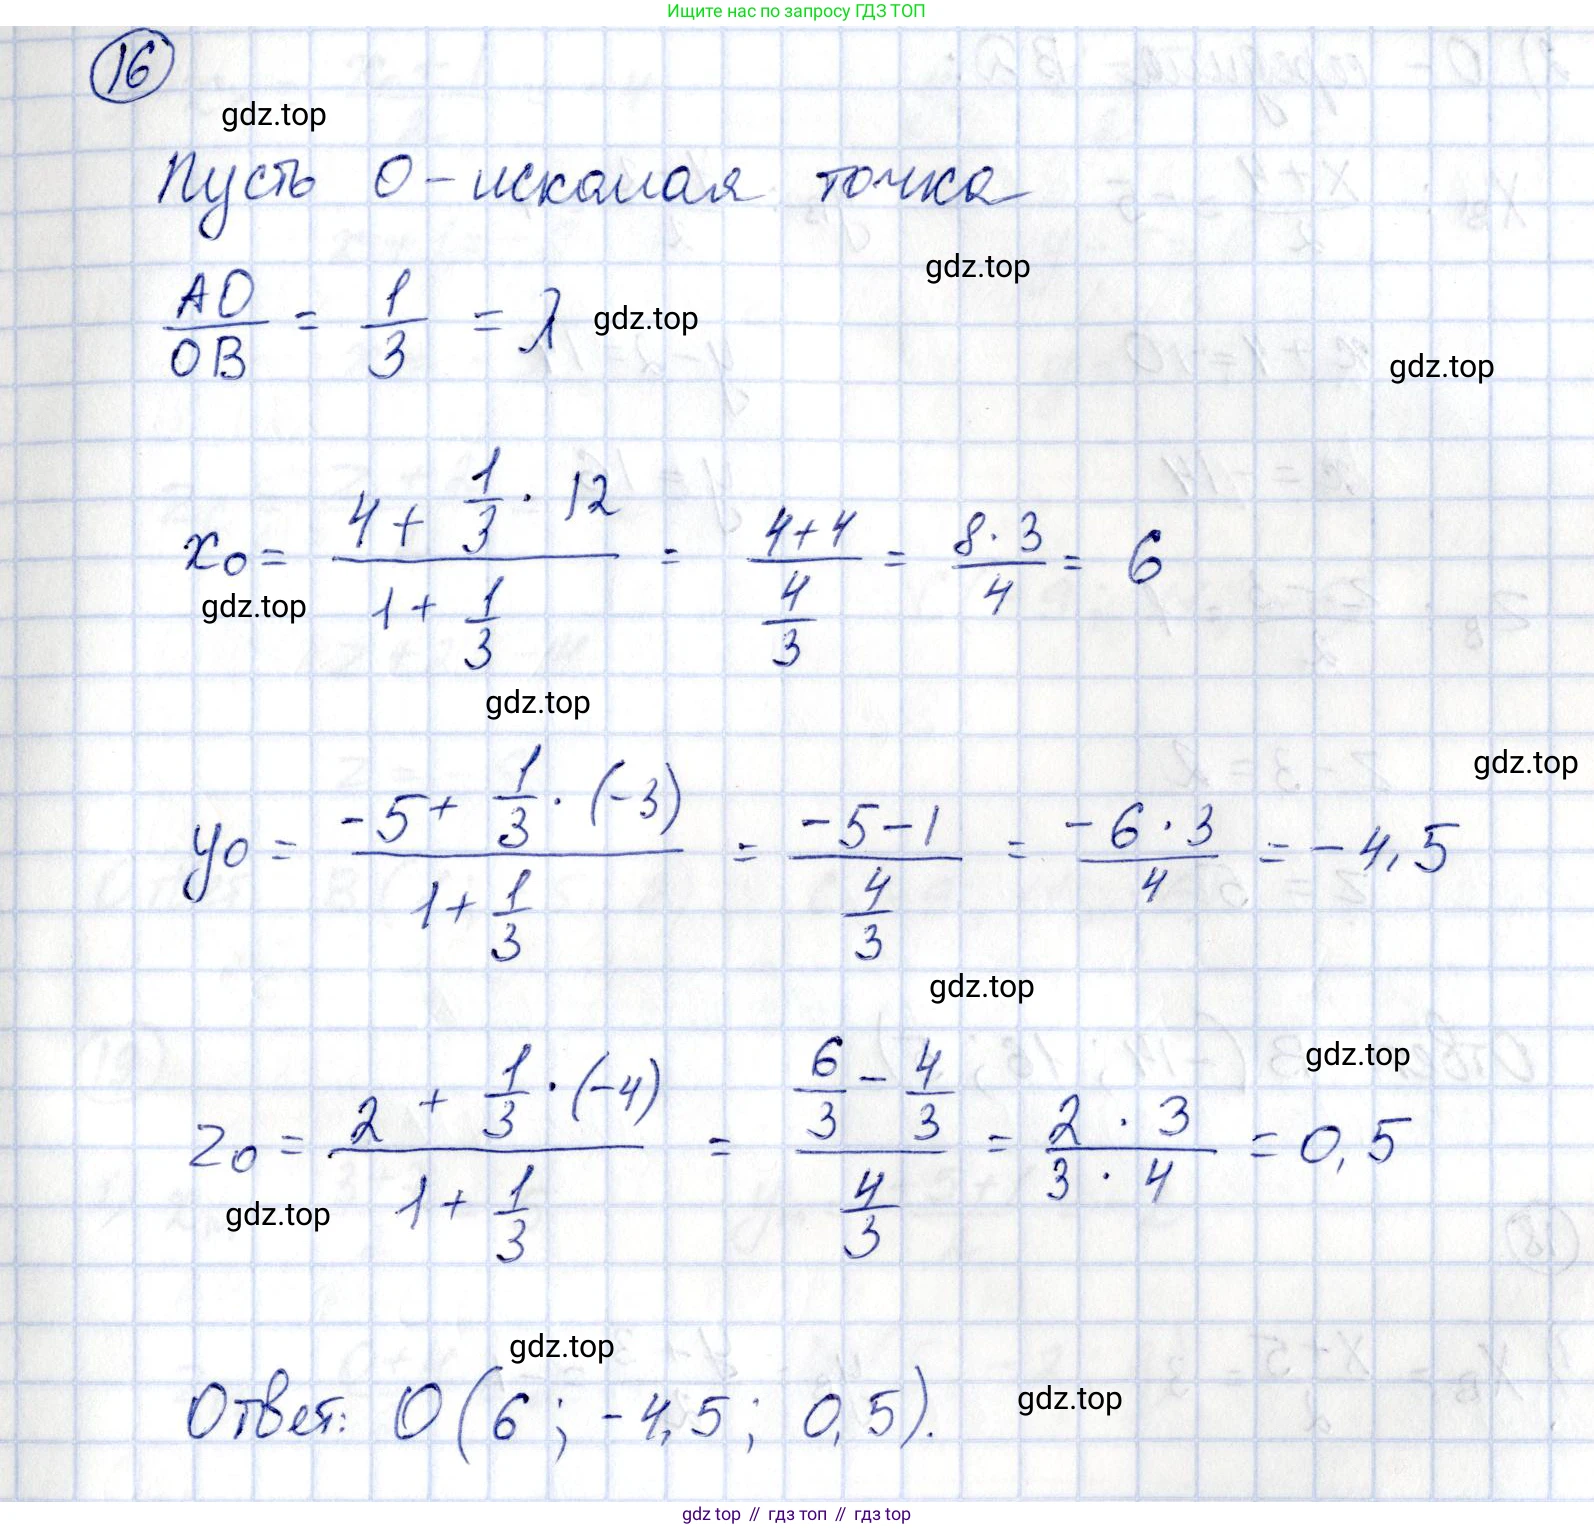 Ищите нас по запросу ГДЗ ТОП
16
gdz.top
Пусть О - искомая точка
gdz.top
AO/OB = 1/3 = λ
gdz.top
gdz.top
x₀ = (4 + 1/3 · 12)/(1 + 1/3) = (4+4)/(4/3) = (8 · 3)/4 = 6
gdz.top
gdz.top
gdz.top
y₀ = (-5 + 1/3 · (-3))/(1 + 1/3) = (-5-1)/(4/3) = (-6 · 3)/4 = -4,5
gdz.top
gdz.top
z₀ = (2 + 1/3 · (-4))/(1 + 1/3) = (6/3 - 4/3)/(4/3) = (2 · 3)/(3 · 4) = 0,5
gdz.top
gdz.top
gdz.top
Ответ: О(6; -4,5; 0,5).
gdz top // гдз топ // гдз top